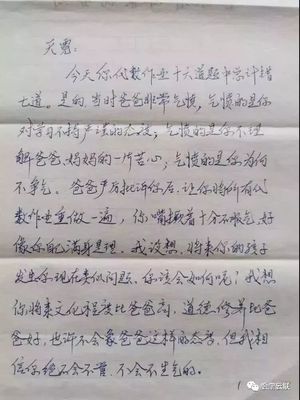 天鹭:
今天你代数作业十六道题中总计错
七道。是的,当时爸爸非常气愤,气愤的是你
对学习不持严谨的态度;气愤的是你不理
解爸爸、妈妈的一片苦心;气愤的是你为何
不争气。爸爸严厉批评你后,让你将所有代
数作业重做一遍,你嘴撅着十分不服气,好
像你自己满身是理。我设想,将来你的孩子
发生你现在类似问题,你该会如何呢?我想
你将来文化程度比爸爸高,道德、修养比爸
爸好,也许不会象爸爸这样的态度,但我相
信你绝不会不管、不会不生气的。
1